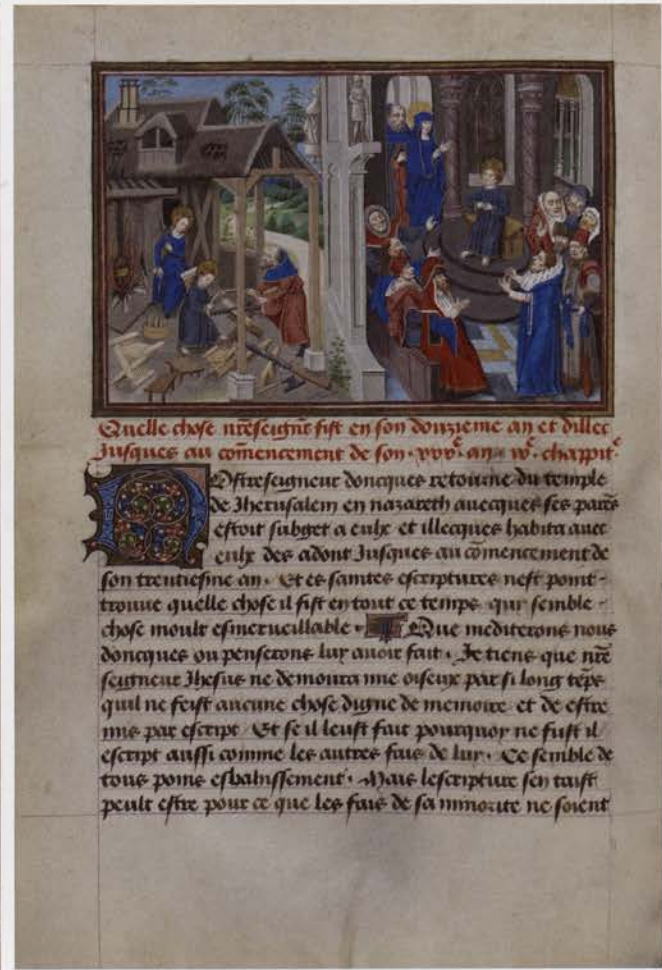 Quelle chose nr̃eseignr̃ fist en son douzieme an et dillec
Jusques au com̃encement de son .xxxᵉ. an. xvᵉ. chappitᵉ.
Nostreseigneur doncques retourne du temple
de Jherusalem en nazareth avecques ses parẽs
estoit subget a eulx et illecques habita avec
eulx des adont Jusques au com̃encement de
son trentiesme an. Et es saintes escriptures nest point
trouue quelle chose il fist en tout ce temps qui semble
chose moult esmerueillable. Que mediterons nous
doncques ou penserons luy auoir fait. Je tiens que nr̃e
seigneur Jhesus ne demoura mie oiseux par si long tẽps
quil ne feist aucune chose digne de memoire et de estre
mis par escript Et se il leust fait pourquoy ne fust il
escript aussi comme les autres fais de luy. Ce semble de
tous poins esbahissement. Mais lescripture sen taist
peult estre pour ce que les fais de sa minorite ne soient